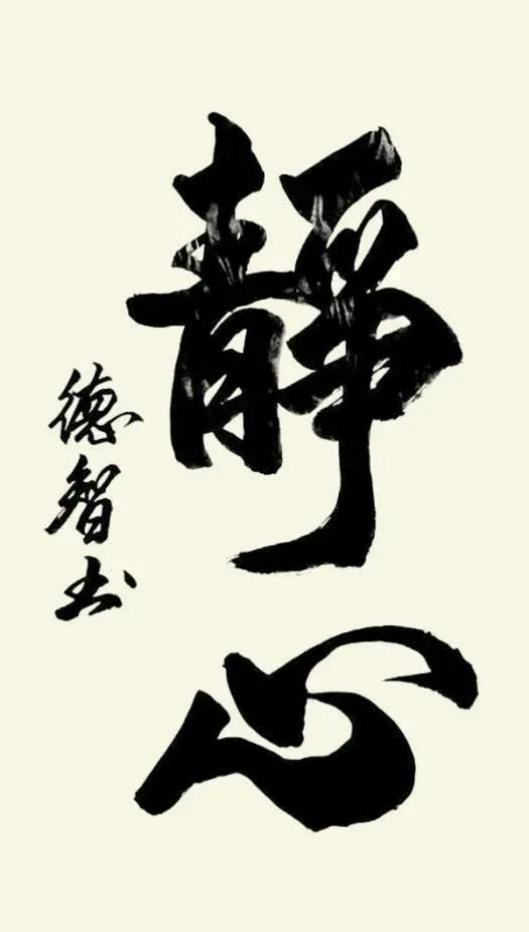 靜心
德智书